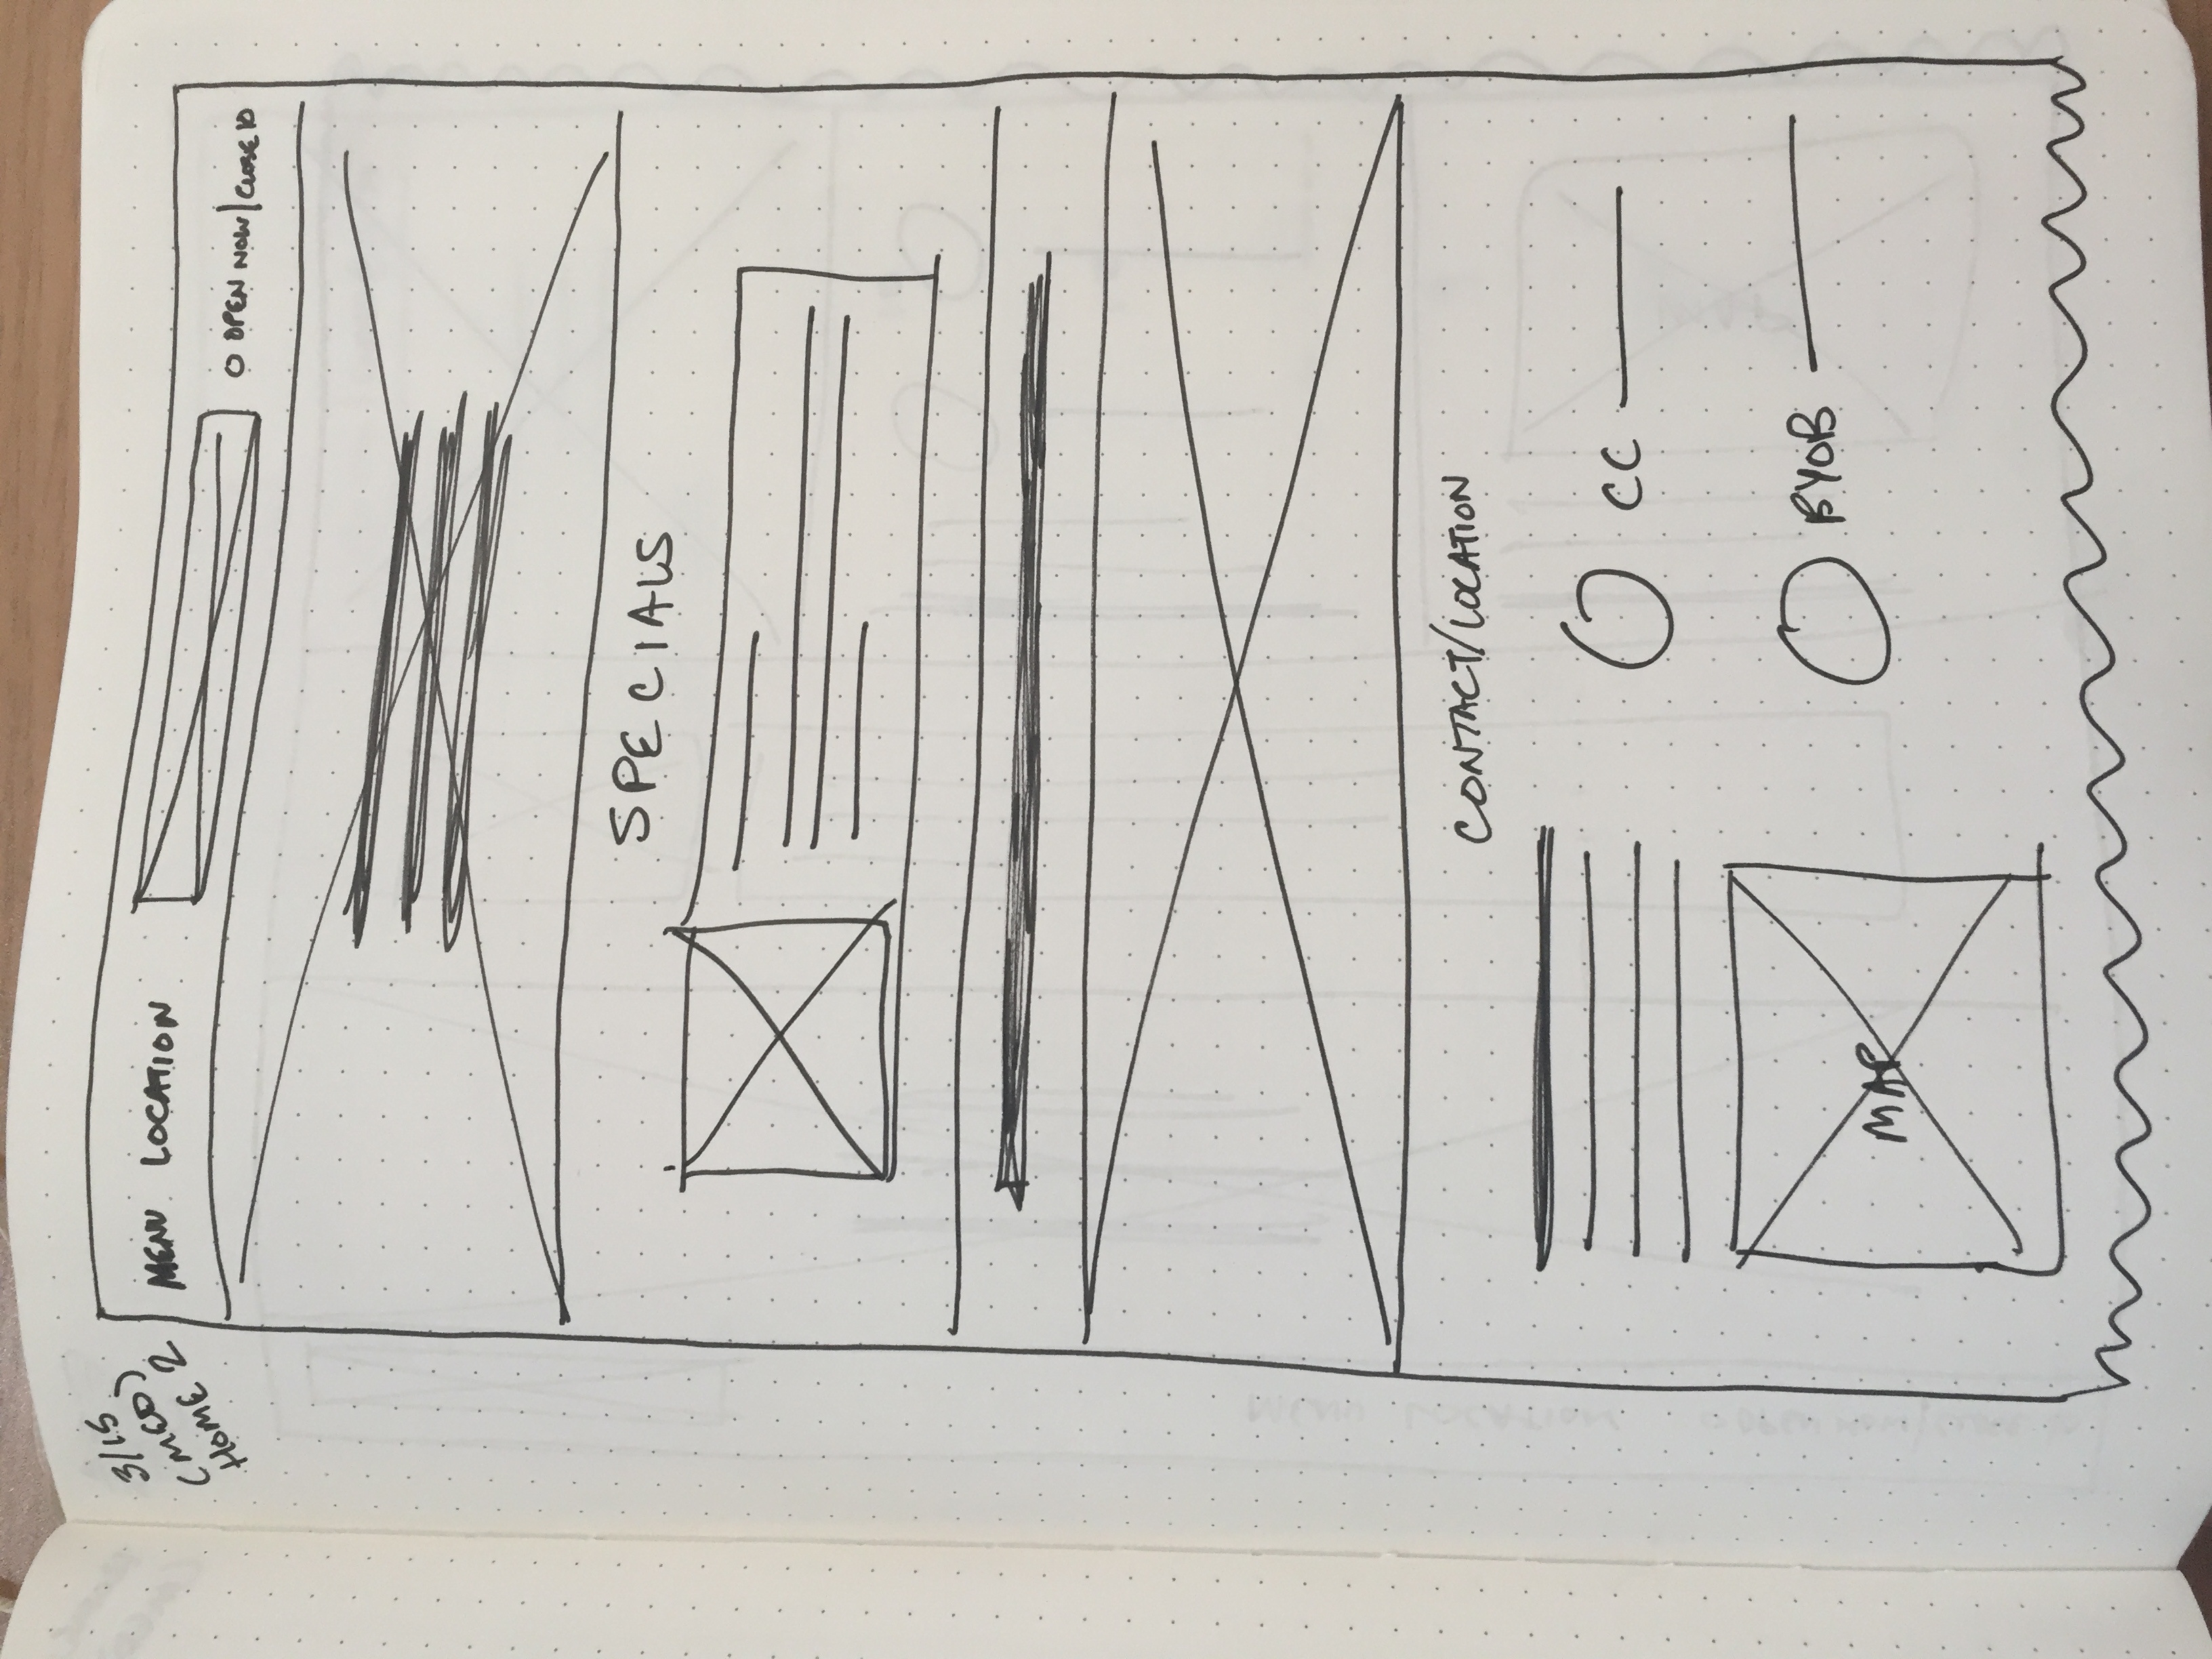 3/15
(MED)
HOME 2
MENU LOCATION
O OPEN NOW/CLOSE 10
SPECIALS
CONTACT/LOCATION
CC
BYOB
MAP